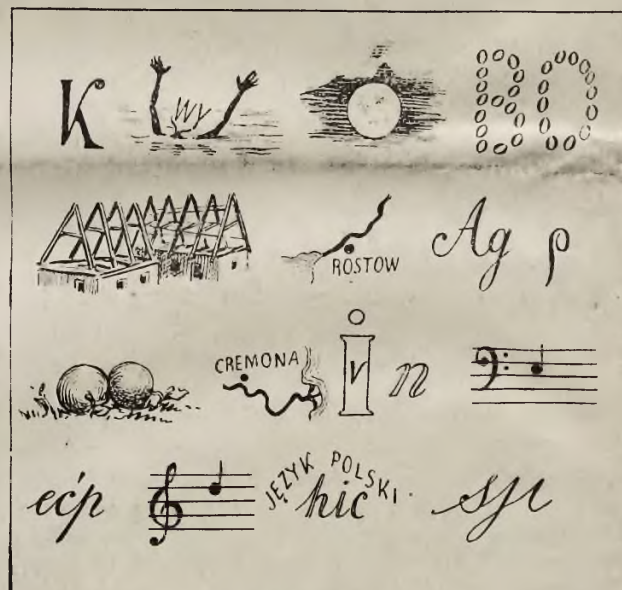 K Wy BO
ROSTOW Ag p
CREMONA i V n
ećp JĘZYK POLSKI. hic sju